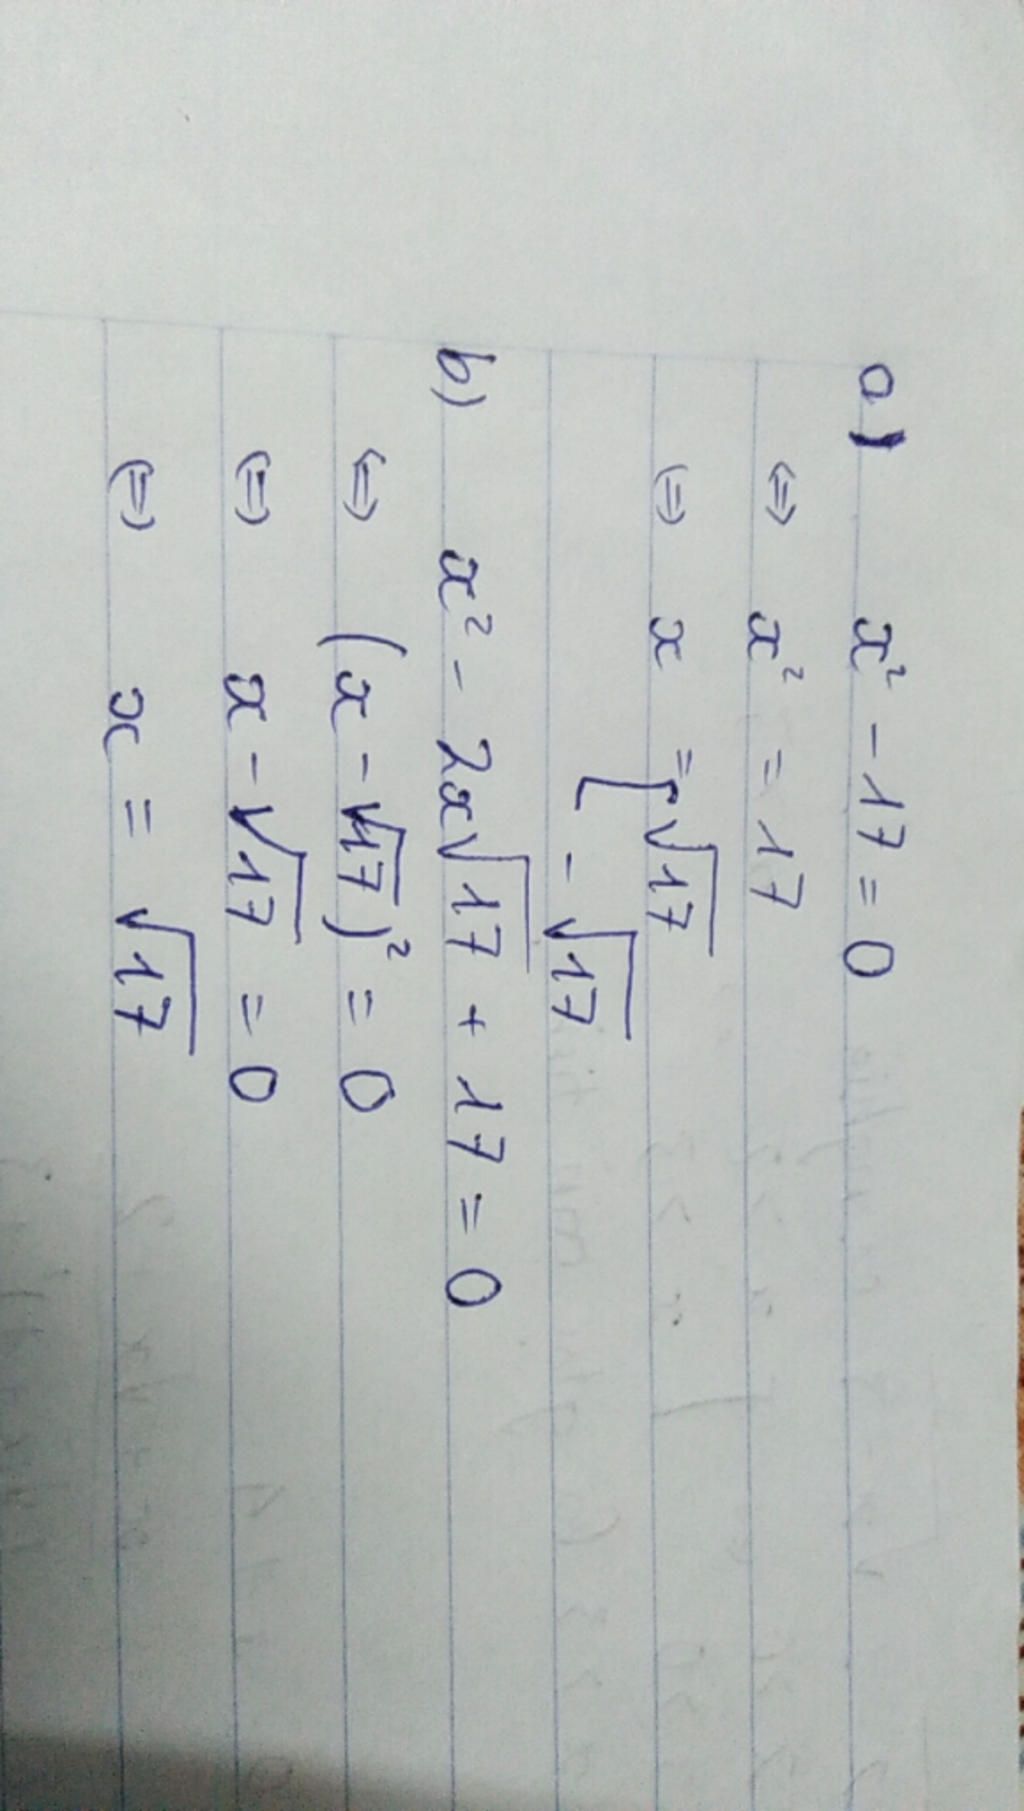 a) x² - 17 = 0
⇔ x² = 17
⇔ x = [ √17
- √17
b) x² - 2x√17 + 17 = 0
⇔ (x - √17)² = 0
⇔ x - √17 = 0
⇔ x = √17